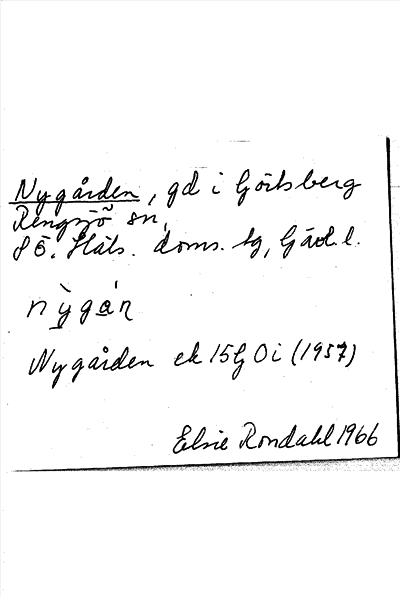 Nygården, gd i Götsberg
Rengsjö sn,
SÖ. Häls. doms. tg, Gävl. l.
nỳgáṇ
Nygården ek 15G 0i (1957)
Elsie Rondahl 1966